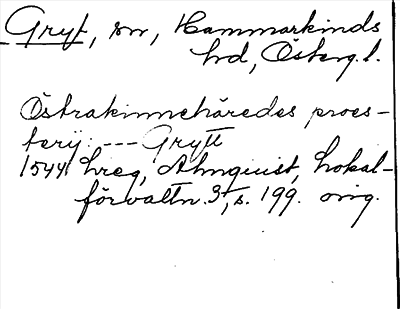 Gryt, sn, Hammarkinds
hd, Österg. l.
Östrakinneháredes proes-
terij: --- Grytt
1544 hreg, Almquist, Lokal-
förvaltn. 3, s. 199. orig.